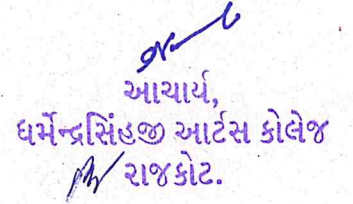 આચાર્ય,
ધર્મેન્દ્રસિંહજી આર્ટસ કોલેજ
રાજકોટ.